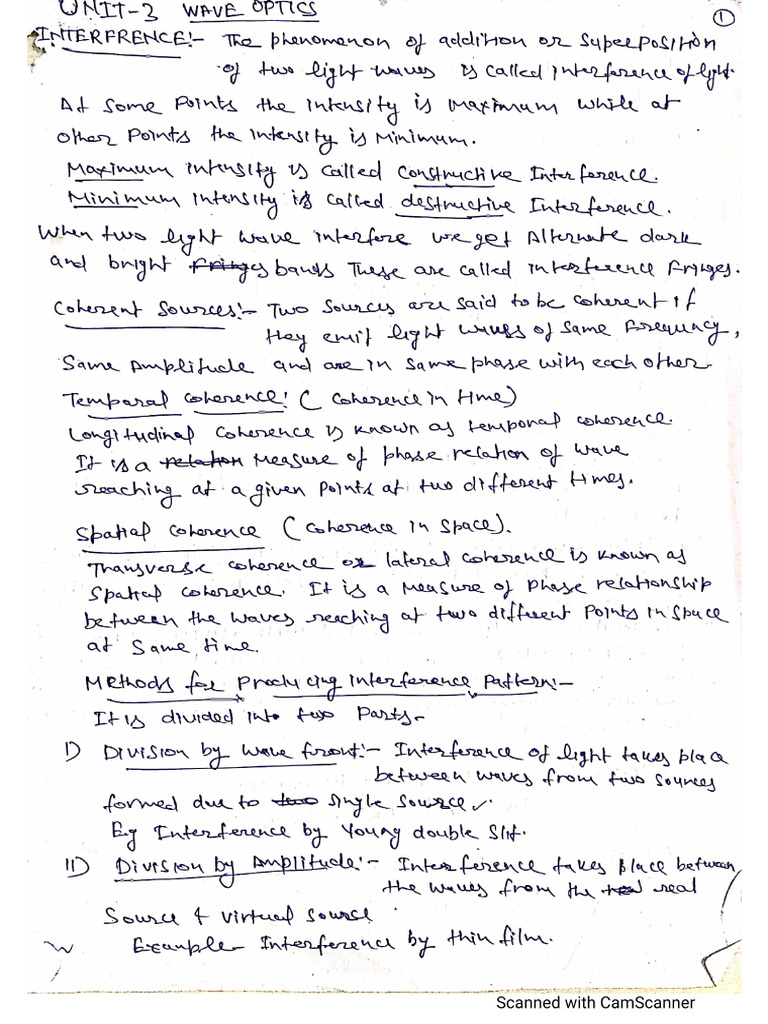 UNIT-3 WAVE OPTICS
1
INTERFRENCE:- The phenomenon of addition or superposition
of two light waves is called interference of light.
At some points the intensity is maximum while at
other points the intensity is minimum.
Maximum intensity is called constructive Interference.
Minimum intensity is called destructive Interference.
When two light wave interfere we get Alternate dark
and bright fringes bands These are called interference fringes.
Coherent Sources:- Two sources are said to be coherent if
they emit light waves of same frequency,
same Amplitude and are in same phase with each other.
Temporal coherence: (coherence in time)
Longitudinal coherence is known as temporal coherence.
It is a relation measure of phase relation of wave
reaching at a given points at two different times.
Spatial coherence (coherence in space).
Transverse coherence or lateral coherence is known as
spatial coherence. It is a measure of phase relationship
between the waves reaching at two different points in space
at same time.
Methods for producing interference pattern:-
It is divided into two parts-
I) Division by wave front:- Interference of light takes place
between waves from two sources
formed due to two single source.
Eg Interference by Young double slit.
II) Division by Amplitude:- Interference takes place between
the waves from the real
source & virtual source
Example- Interference by thin film.
Scanned with CamScanner